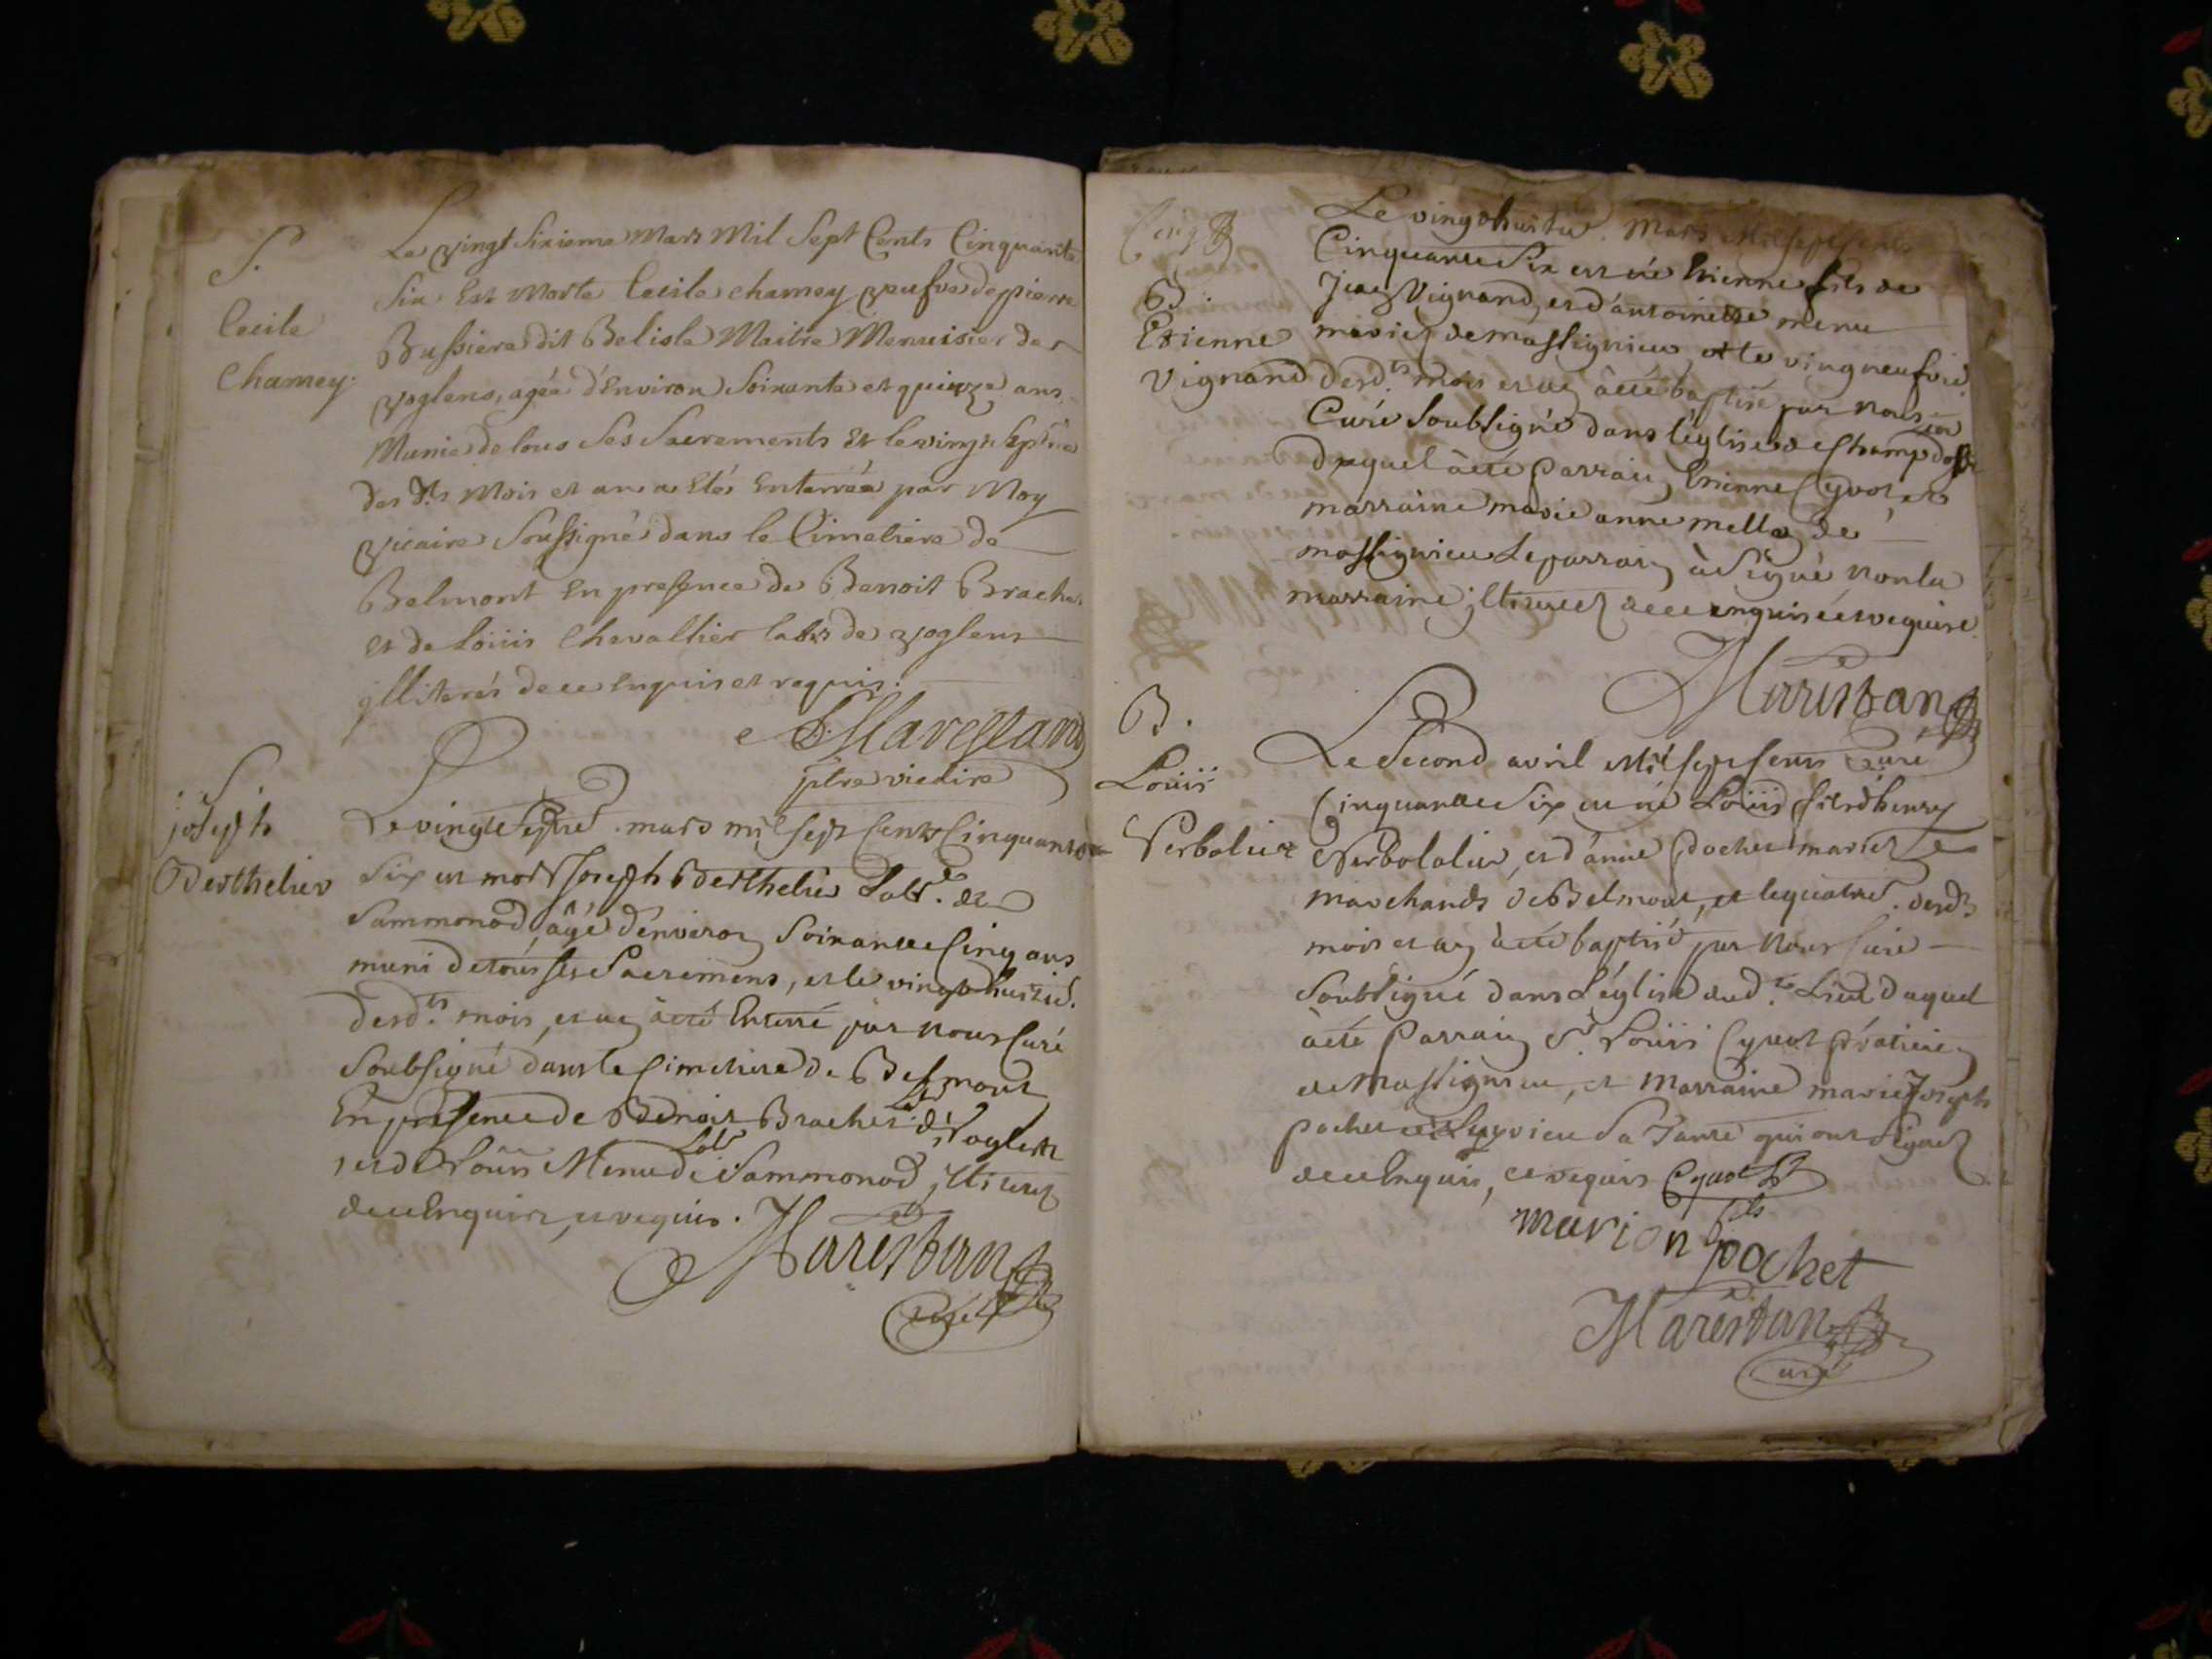 S.
Cecile
Chamey.
Le vingt Sixieme Mars Mil Sept Cents Cinquante
Six Est Morte Cecile chamey veufve de pierre
Bussiere dit Belisle Maitre Menuisier de
voglens, agée d'Environ Soixante et quinze ans
Munie de tous Ses Sacrements Et le vingt Sept.e
des d.ts Mois et an a Etés Enterrée par Moy
vicaire Soussigné dans le Cimetiere de
Belmont En presence de Benoit Brachet
et de Loüis Chevallier lab.rs de voglens
illiterés de ce Enquis et requis.
Marestan
ptre vicaire
S.
joseph
Berthelier
Le vingt Sept.e mars mil sept Cents Cinquante
Six est mort Joseph Berthelier Lab.r de
Sammonod, âgé d'environ Soixante Cinq ans
muni de tous ses Sacremens, et le vingt huitie.
desd.ts mois, et an à eté Enterré par nous Curé
Soubsigné dans le Cimetiere de Belmont
En presence de Benoit Brachet Lab.r de Voglens
et de Loüis Menu Lab.r de Sammonod, illiterez
de ce Enquis, et requis.
Marestan
Curé
Le vingt huitie. Mars Mil sept Cents
Cinquante Six est né Etienne fils de
Jean Vignand, et d'antoinette menu
B.
Etienne
Vignand
mariez de massignieu et le vingneufvie.
desd.ts mois et an à eté baptisé par nous
Curé Soubsigné dans l'église de Champdossin
duquel à eté Parrain Etienne Cyvot, et
marraine marie anne mella de
massignieu Le parrain à Signé non la
marraine illiterée de ce enquise et requise
Marestan
Curé
B.
Loüis
Verbalier
Le Second avril Mil sept Cents
Cinquante Six est né Loüis fils d'henry
Verbolalier, et d'anne Pochet mariez
marchands de Belmont, et le quatrie. desd.ts
mois et an à eté baptisé par Nous Curé
Soubsigné dans L'église dud.t Lieu duquel
à eté Parrain S.r Loüis Cyvot Praticien
de Massignieu, et Marraine marie Joseph
pochet de Sa Tante qui ont Signez
de ce Enquis, et requis Cyvot fils
marion pochet
Marestan
Curé